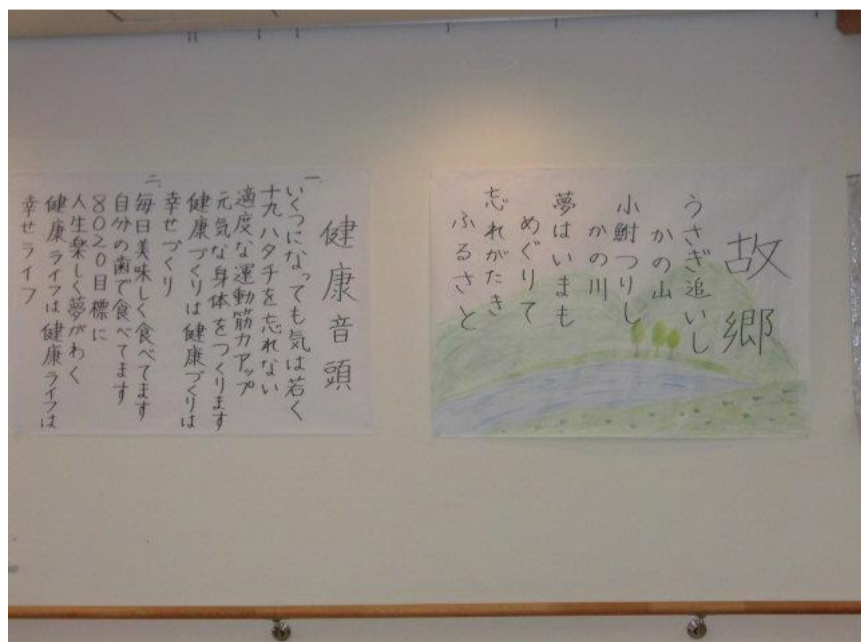 故郷
うさぎ追いし
かの山
小鮒つりし
かの川
夢はいまも
めぐりて
忘れがたき
ふるさと
健康音頭
一、
いくつになっても気は若く
十九ハタチを忘れない
適度な運動筋力アップ
元気な身体をつくります
健康づくりは健康づくりは
幸せづくり
二、
毎日美味しく食べてます
自分の歯で食べてます
8020目標に
人生楽しく夢がわく
健康ライフは健康ライフは
幸せライフ